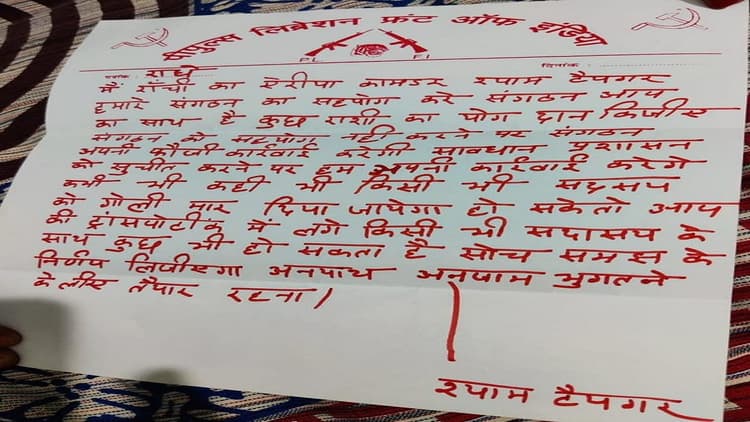 पीपुल्स लिब्रेशन फ्रंट ऑफ इंडिया
PL FI
पत्रांक : दिनांक :
राधे
मैं राँची का ऐरीया कामडर श्याम टैपगर
हमारे संगठन का सहयोग करे संगठन आप
का साथ है कुछ राशी का योग दान किजीए
संगठन को सहयोग नही करने पर संगठन
अपनी फौजी कार्रवाई करेगी सावधान प्रशासन
को सुचीत करने पर हम अपनी कार्रवाई करेगे
कभी भी कही भी किसी भी सदस्य
को गोली मार दिया जायेगा हो सकेतो आप
की ट्रांसपोटींक में लगे किसी भी सदासय के
साथ कुछ भी हो सकता है सोच समझ के
निर्णय लिजीएगा अनयाथ अनयाम भुगतने
के लीए तैयार रहना।
श्याम टैपगर